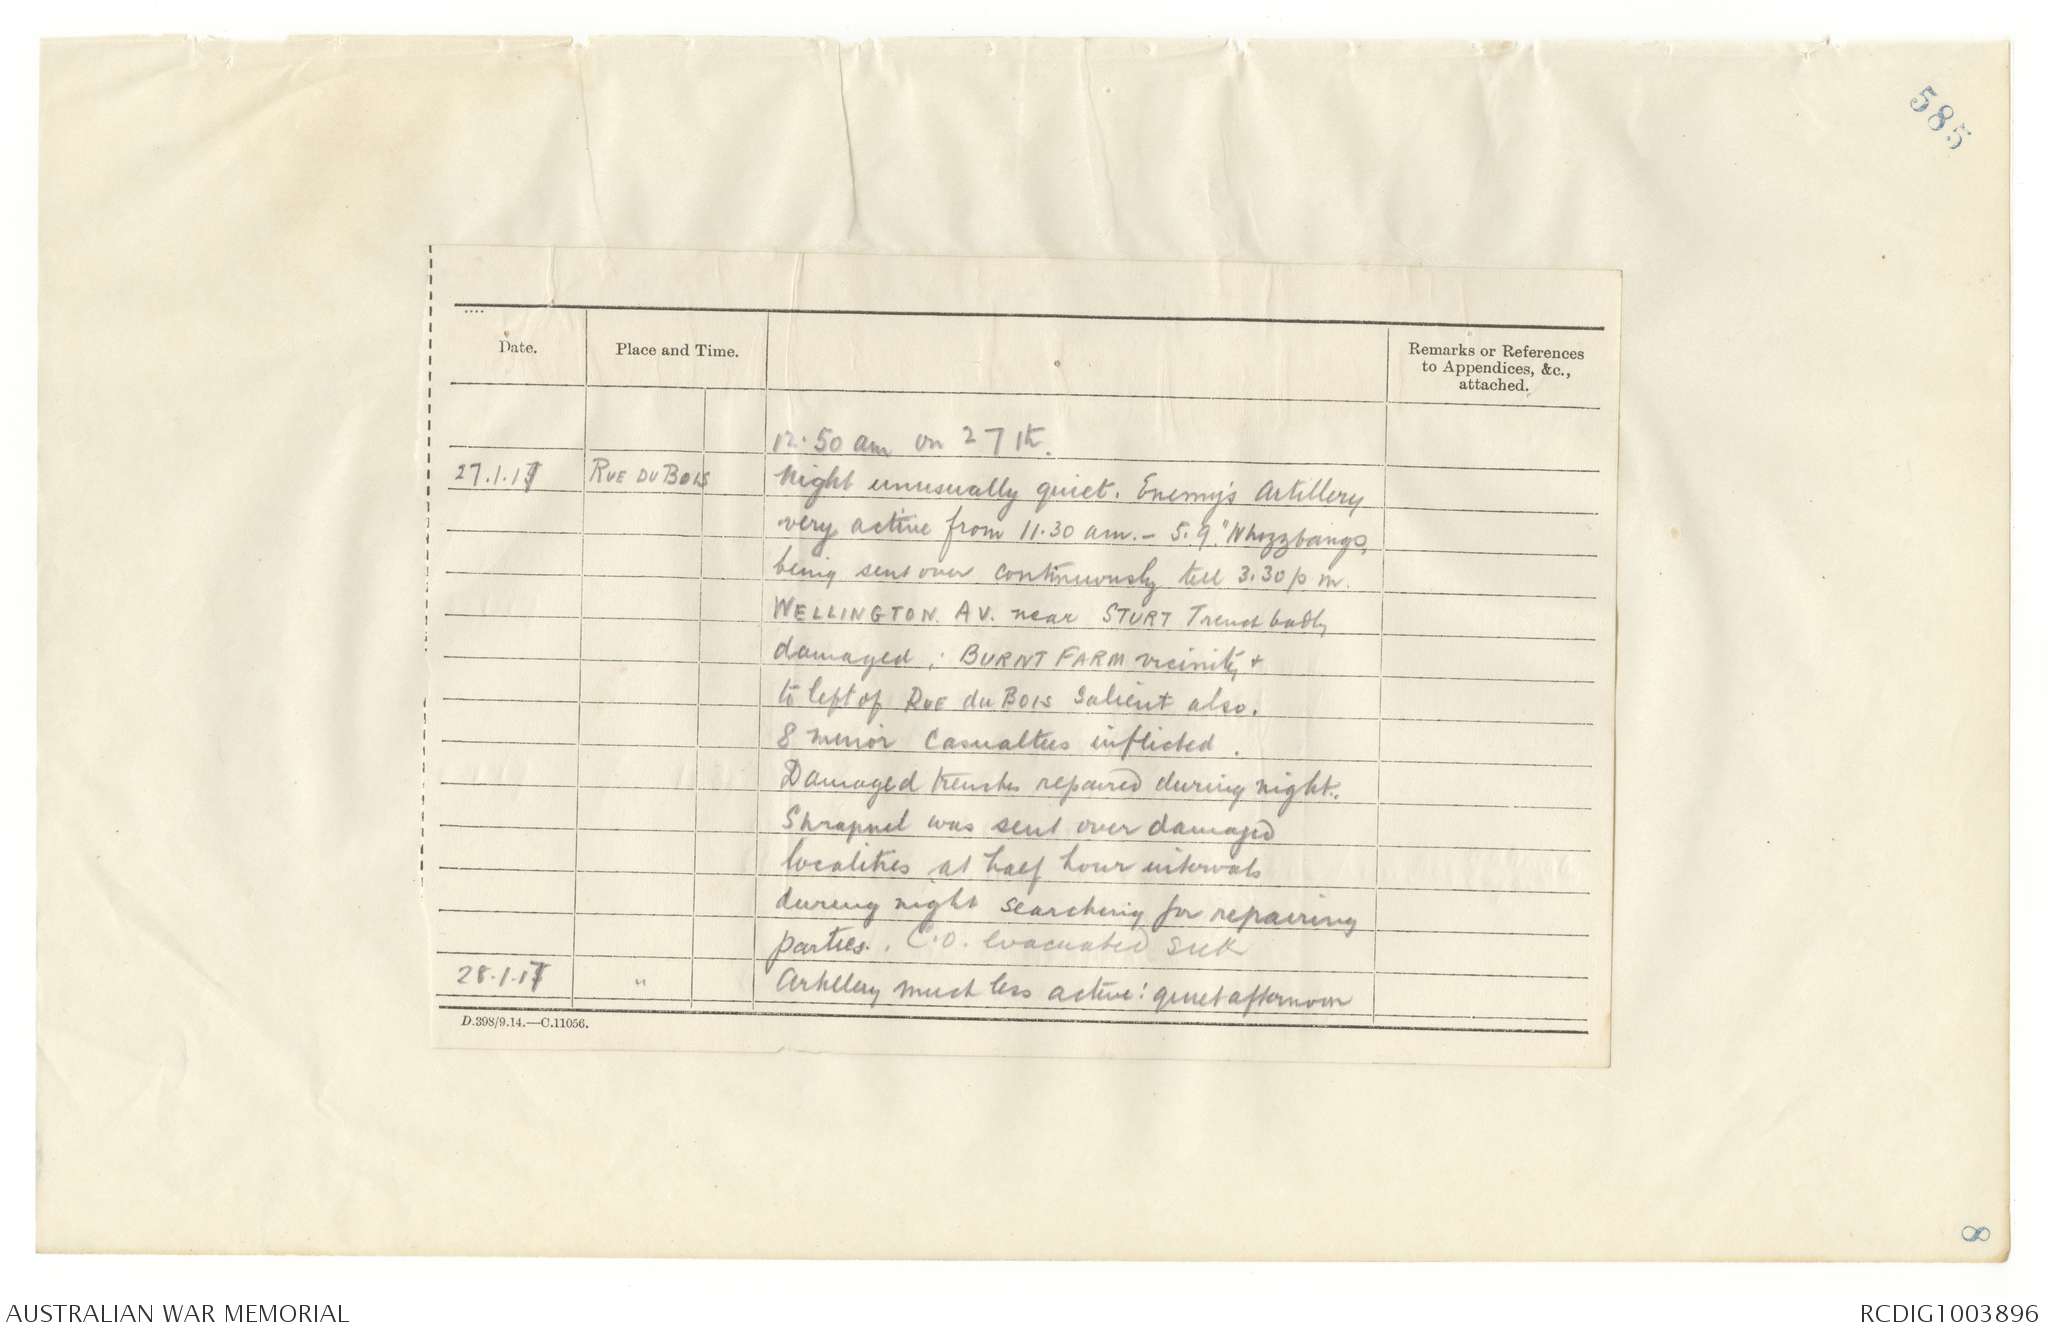 585
Date.
Place and Time.
Remarks or References
to Appendices, &c.,
attached.
12.50 am on 27th.
27.1.17 RUE DU BOIS Night unusually quiet. Enemy's Artillery
very active from 11.30 am. – 5.9" Whizzbangs,
being sent over continuously till 3.30 p m.
WELLINGTON. AV. near STURT Trench badly
damaged; BURNT FARM vicinity +
to left of RUE du BOIS Salient also.
8 minor casualties inflicted.
Damaged trenches repaired during night.
Shrapnel was sent over damaged
localities at half hour intervals
during night searching for repairing
parties. C.O. evacuated sick
28.1.17 " Artillery much less active: quiet afternoon
D.398/9.14.—C.11056.
8
AUSTRALIAN WAR MEMORIAL
RCDIG1003896